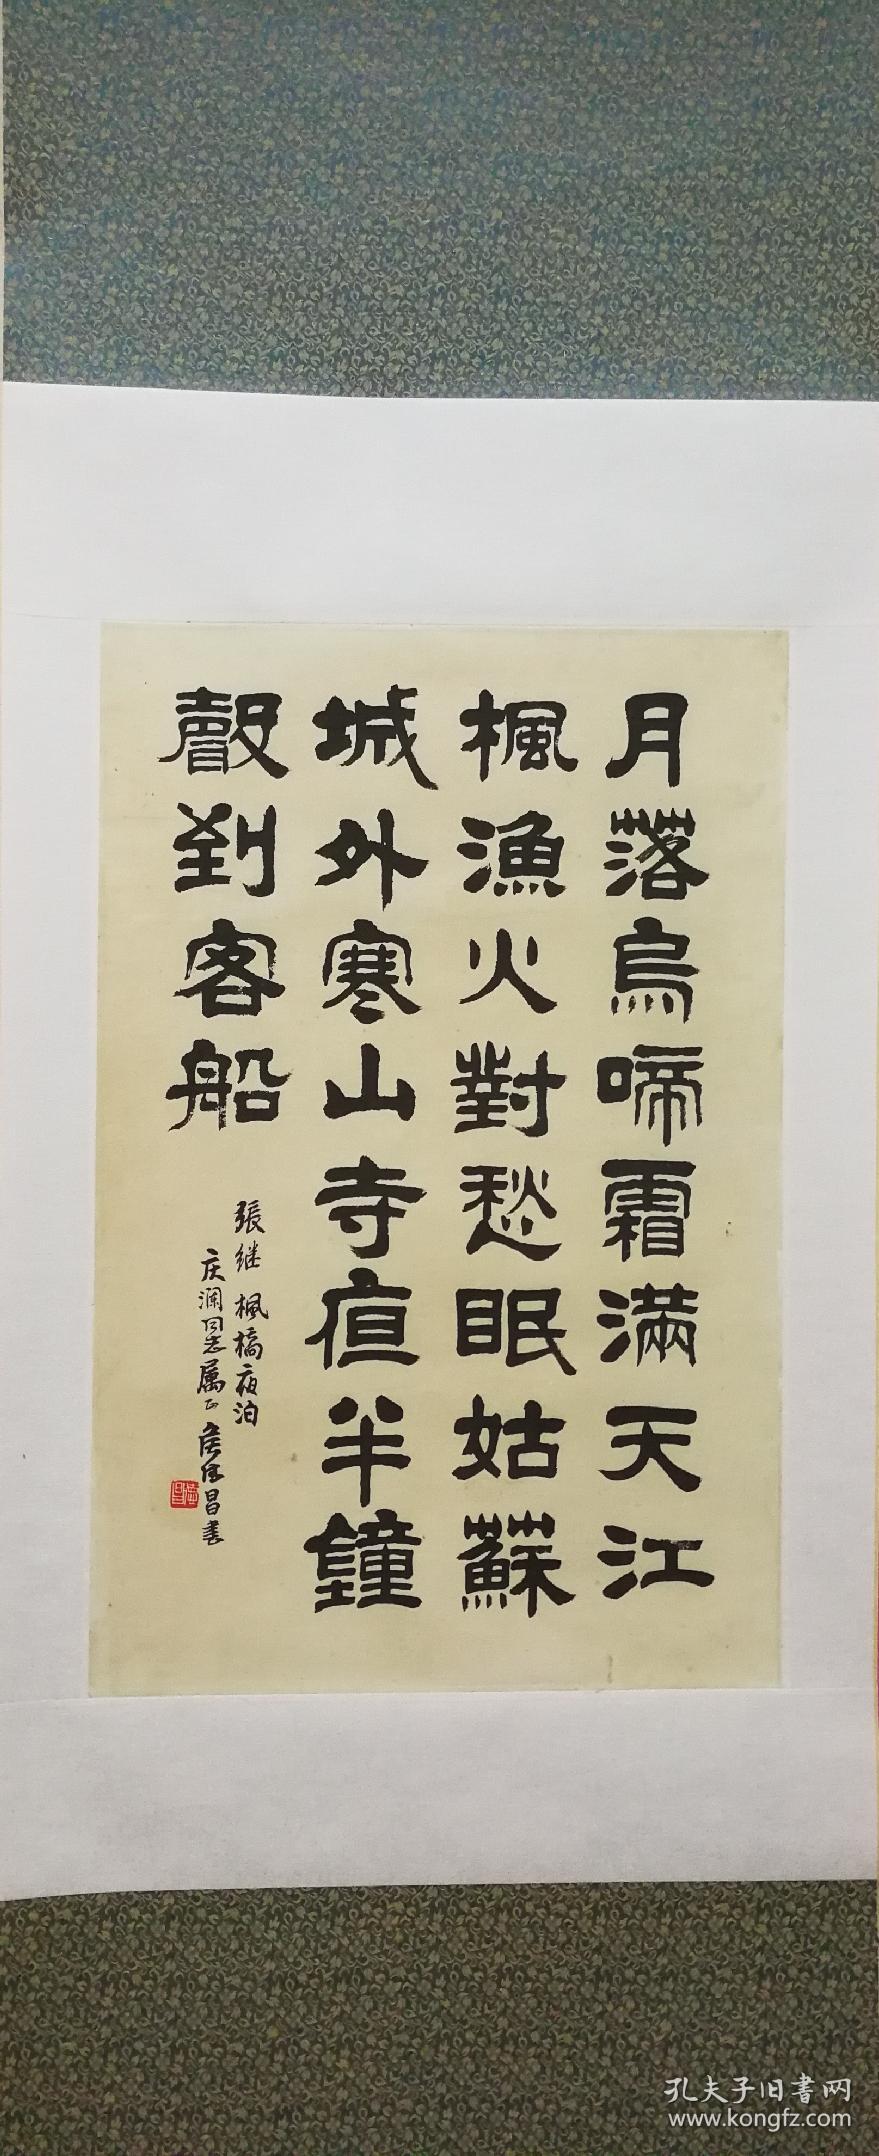 月落烏啼霜滿天江
楓漁火對愁眠姑蘇
城外寒山寺夜半鐘
聲到客船
張继 楓橋夜泊
庆澜同志属正 侯德昌書
孔夫子旧書网
www.kongfz.com